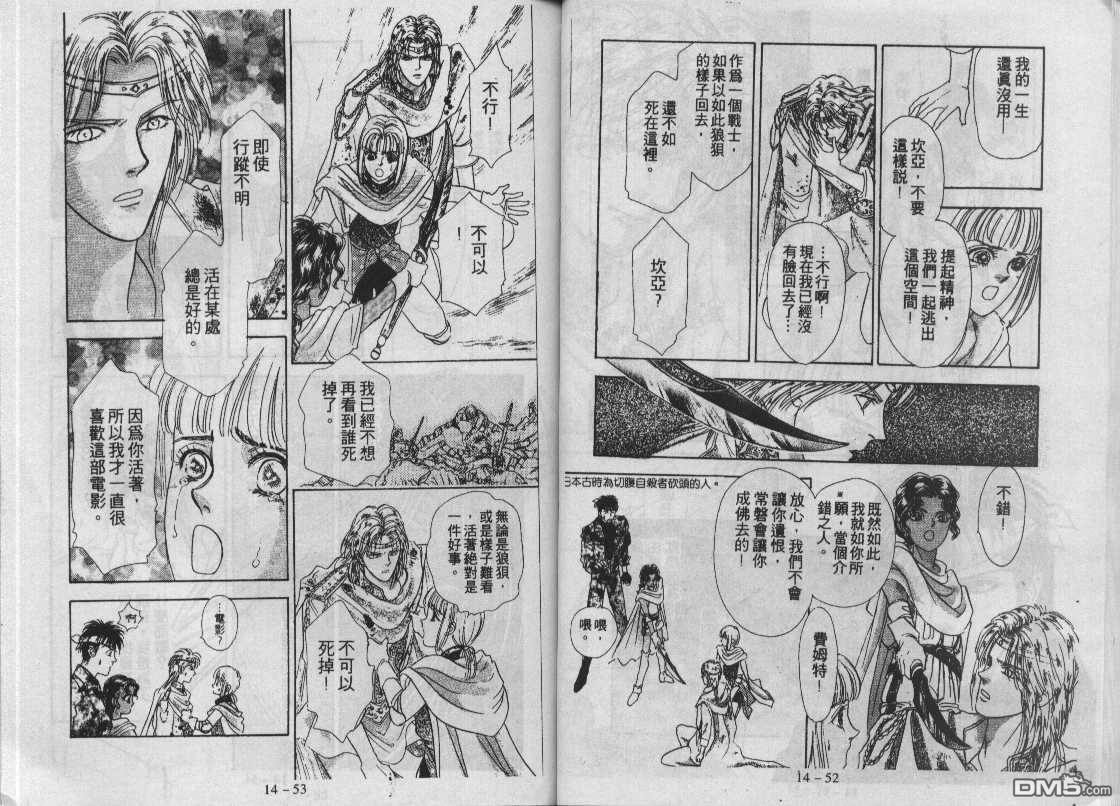 我的一生
還真沒用—
坎亞，不要
這樣說！
提起精神，
我們一起逃出
這個空間！
…不行啊！
現在我已經沒
有臉回去了…
作爲一個戰士，
如果以如此狼狽
的樣子回去，
還不如
死在這裡。
坎亞？
不錯！
既然如此，
我就如你所
願，當個介
錯之人。
※
放心，我們不會
讓你遺恨，
常磐會讓你
成佛去的！
日本古時為切腹自殺者砍頭的人。
費姆特！
喂，
喂。
14－52
不行！
不可以
！
即使
行蹤不明—
活在某處
總是好的。
我已經不想
再看到誰死
掉了。
因爲你活著，
所以我才一直很
喜歡這部電影。
無論是狼狽，
或是樣子難看
，活著絕對是
一件好事。
不可以
死掉！
…電影？
啊
14－53
DM5.com